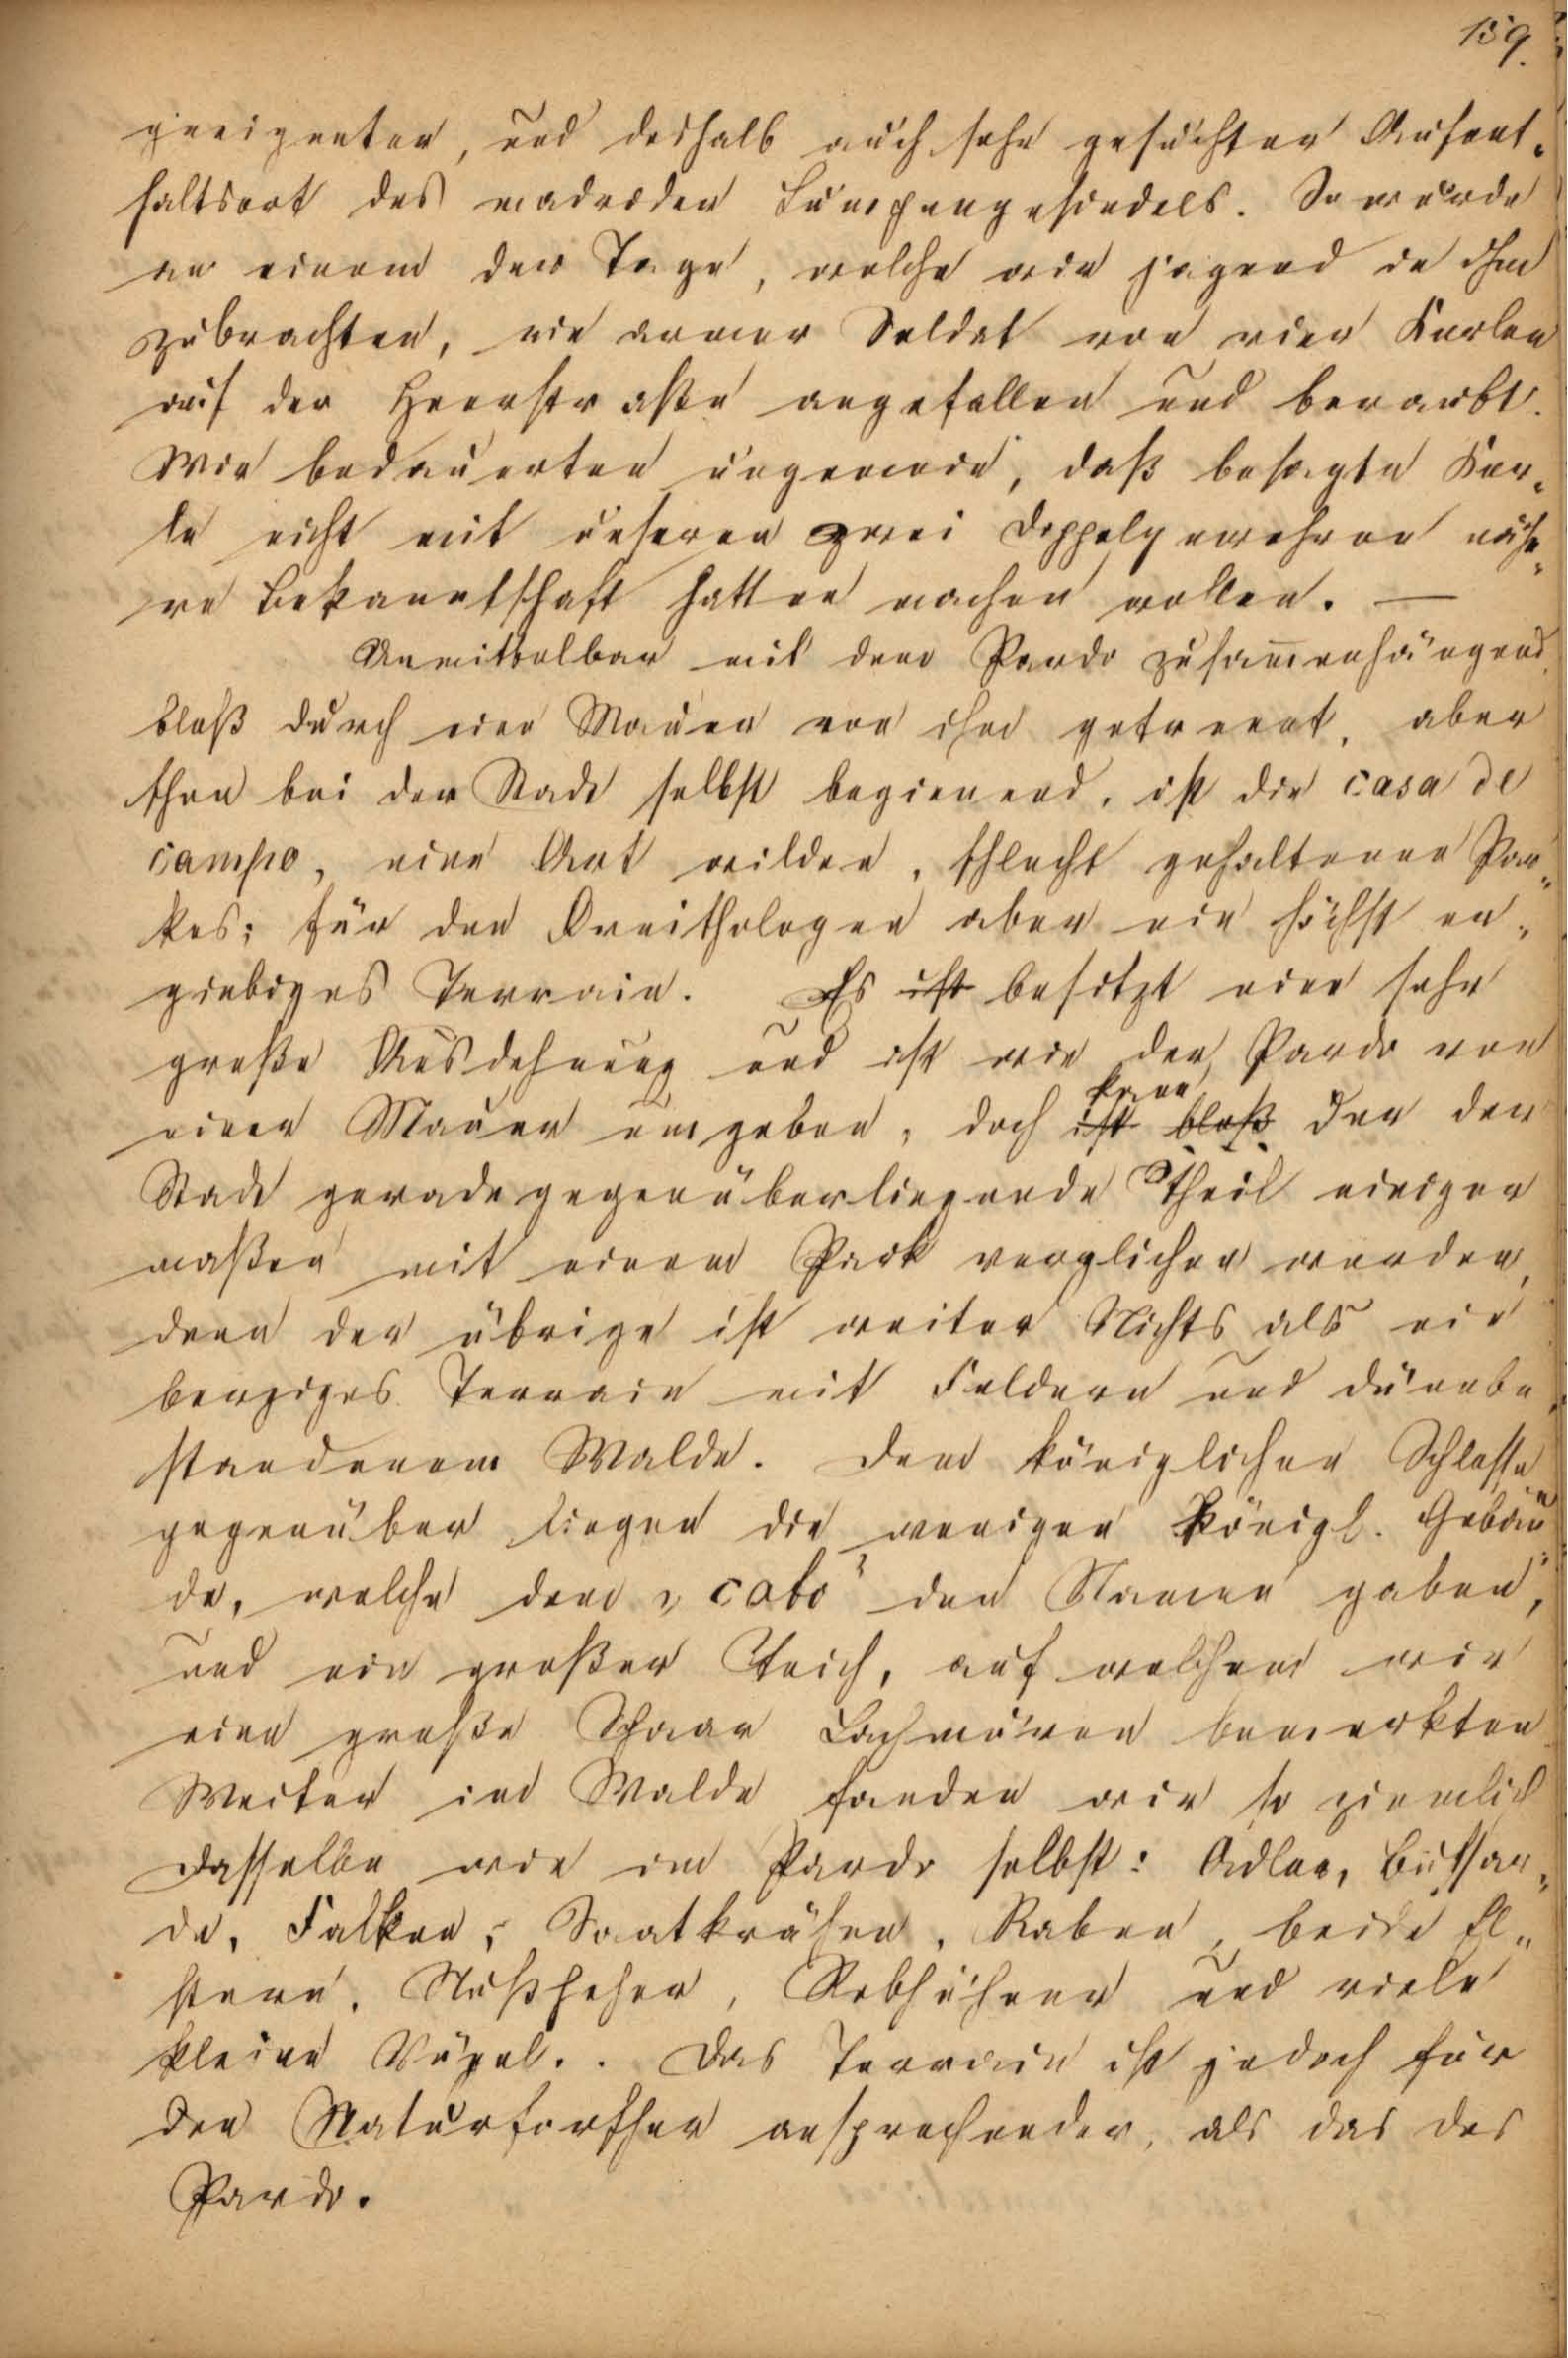 159.
geeigneter, und deshalb auch sehr gesuchter Aufent-
haltsort des madrider Lumpengesindels. So wurde
an einem der Tage, welche wir jagend in ihm
zubrachten, ein armer Soldat von vier Kerlen
auf der Heerstraße angefallen und beraubt.
Wir bedauerten ungemein, daß besagte Ker-
le nicht mit unseren zwei Doppelgewehren nähe-
re Bekanntschaft hatten machen wollen. —
Unmittelbar mit dem Pardo zusam̄enhängend,
bloß durch eine Mauer von ihm getrennt, aber
schon bei der Stadt selbst beginnend, ist die casa de
campo, eine Art wilden, schlecht gehaltenen Par-
kes; für den Ornithologen aber ein höchst er-
giebiges Terrain. Es ist besitzt eine sehr
große Ausdehnung und ist wie der Pardo von
einer Mauer umgeben, doch ist kann bloß der der
Stadt geradegegenüberliegende Theil einiger
maßen mit einem Park verglichen werden,
denn der übrige ist weiter Nichts als ein
bergiges Terrain mit Feldern und dünnbe-
standenem Walde. Dem königlichen Schlosse
gegenüber liegen die wenigen Königl. Gebäu-
de, welche dem „cabo" den Namen gaben,
und ein großer Teich, auf welchem wir
eine große Schaar Lachmöven bemerkten
Weiter im Walde fanden wir so ziemlich
dasselbe wie im Pardo selbst: Adler, Bussar-
de, Falken, Saatkrähen, Raben, beide El-
stern, Nußheher, Rebhühner und viele
kleine Vögel.. Das Terrain ist jedoch für
den Naturforscher ansprechender, als das des
Pardo.